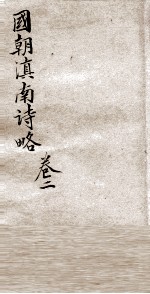 國朝滇南詩略
卷二